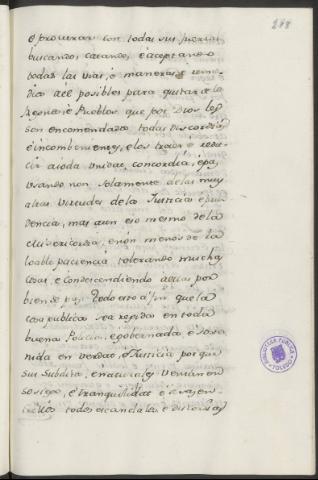 248
é procurar con todas sus fuerzas
buscando, catando, é aceptando
todas las vias, é maneras é reme-
dios á él posibles para quitar de los
Regnos é Pueblos que por Dios les
son encomendados todas discordias
é incombenientes, é los traer é redu-
cir á toda unidad, concordia, é paz,
usando non solamente de las muy
altas virtudes de la Justicia é pru-
dencia, mas aun eso mesmo de la
clemencia, enon menos de la
loable paciencia tolerando muchas
cosas, é condescendiendo á ellas por
bien de paz. Todo esto á fin que la
cosa publica sea regida en toda
buena Policia, é gobernada, é soste-
nida en verdad, é Justicia por que
sus Subditos, é naturales vivan en
sosiego, é tranquilidad é cesen
todos escandalos é discordias
BIBLIOTECA PUBLICA
TOLEDO